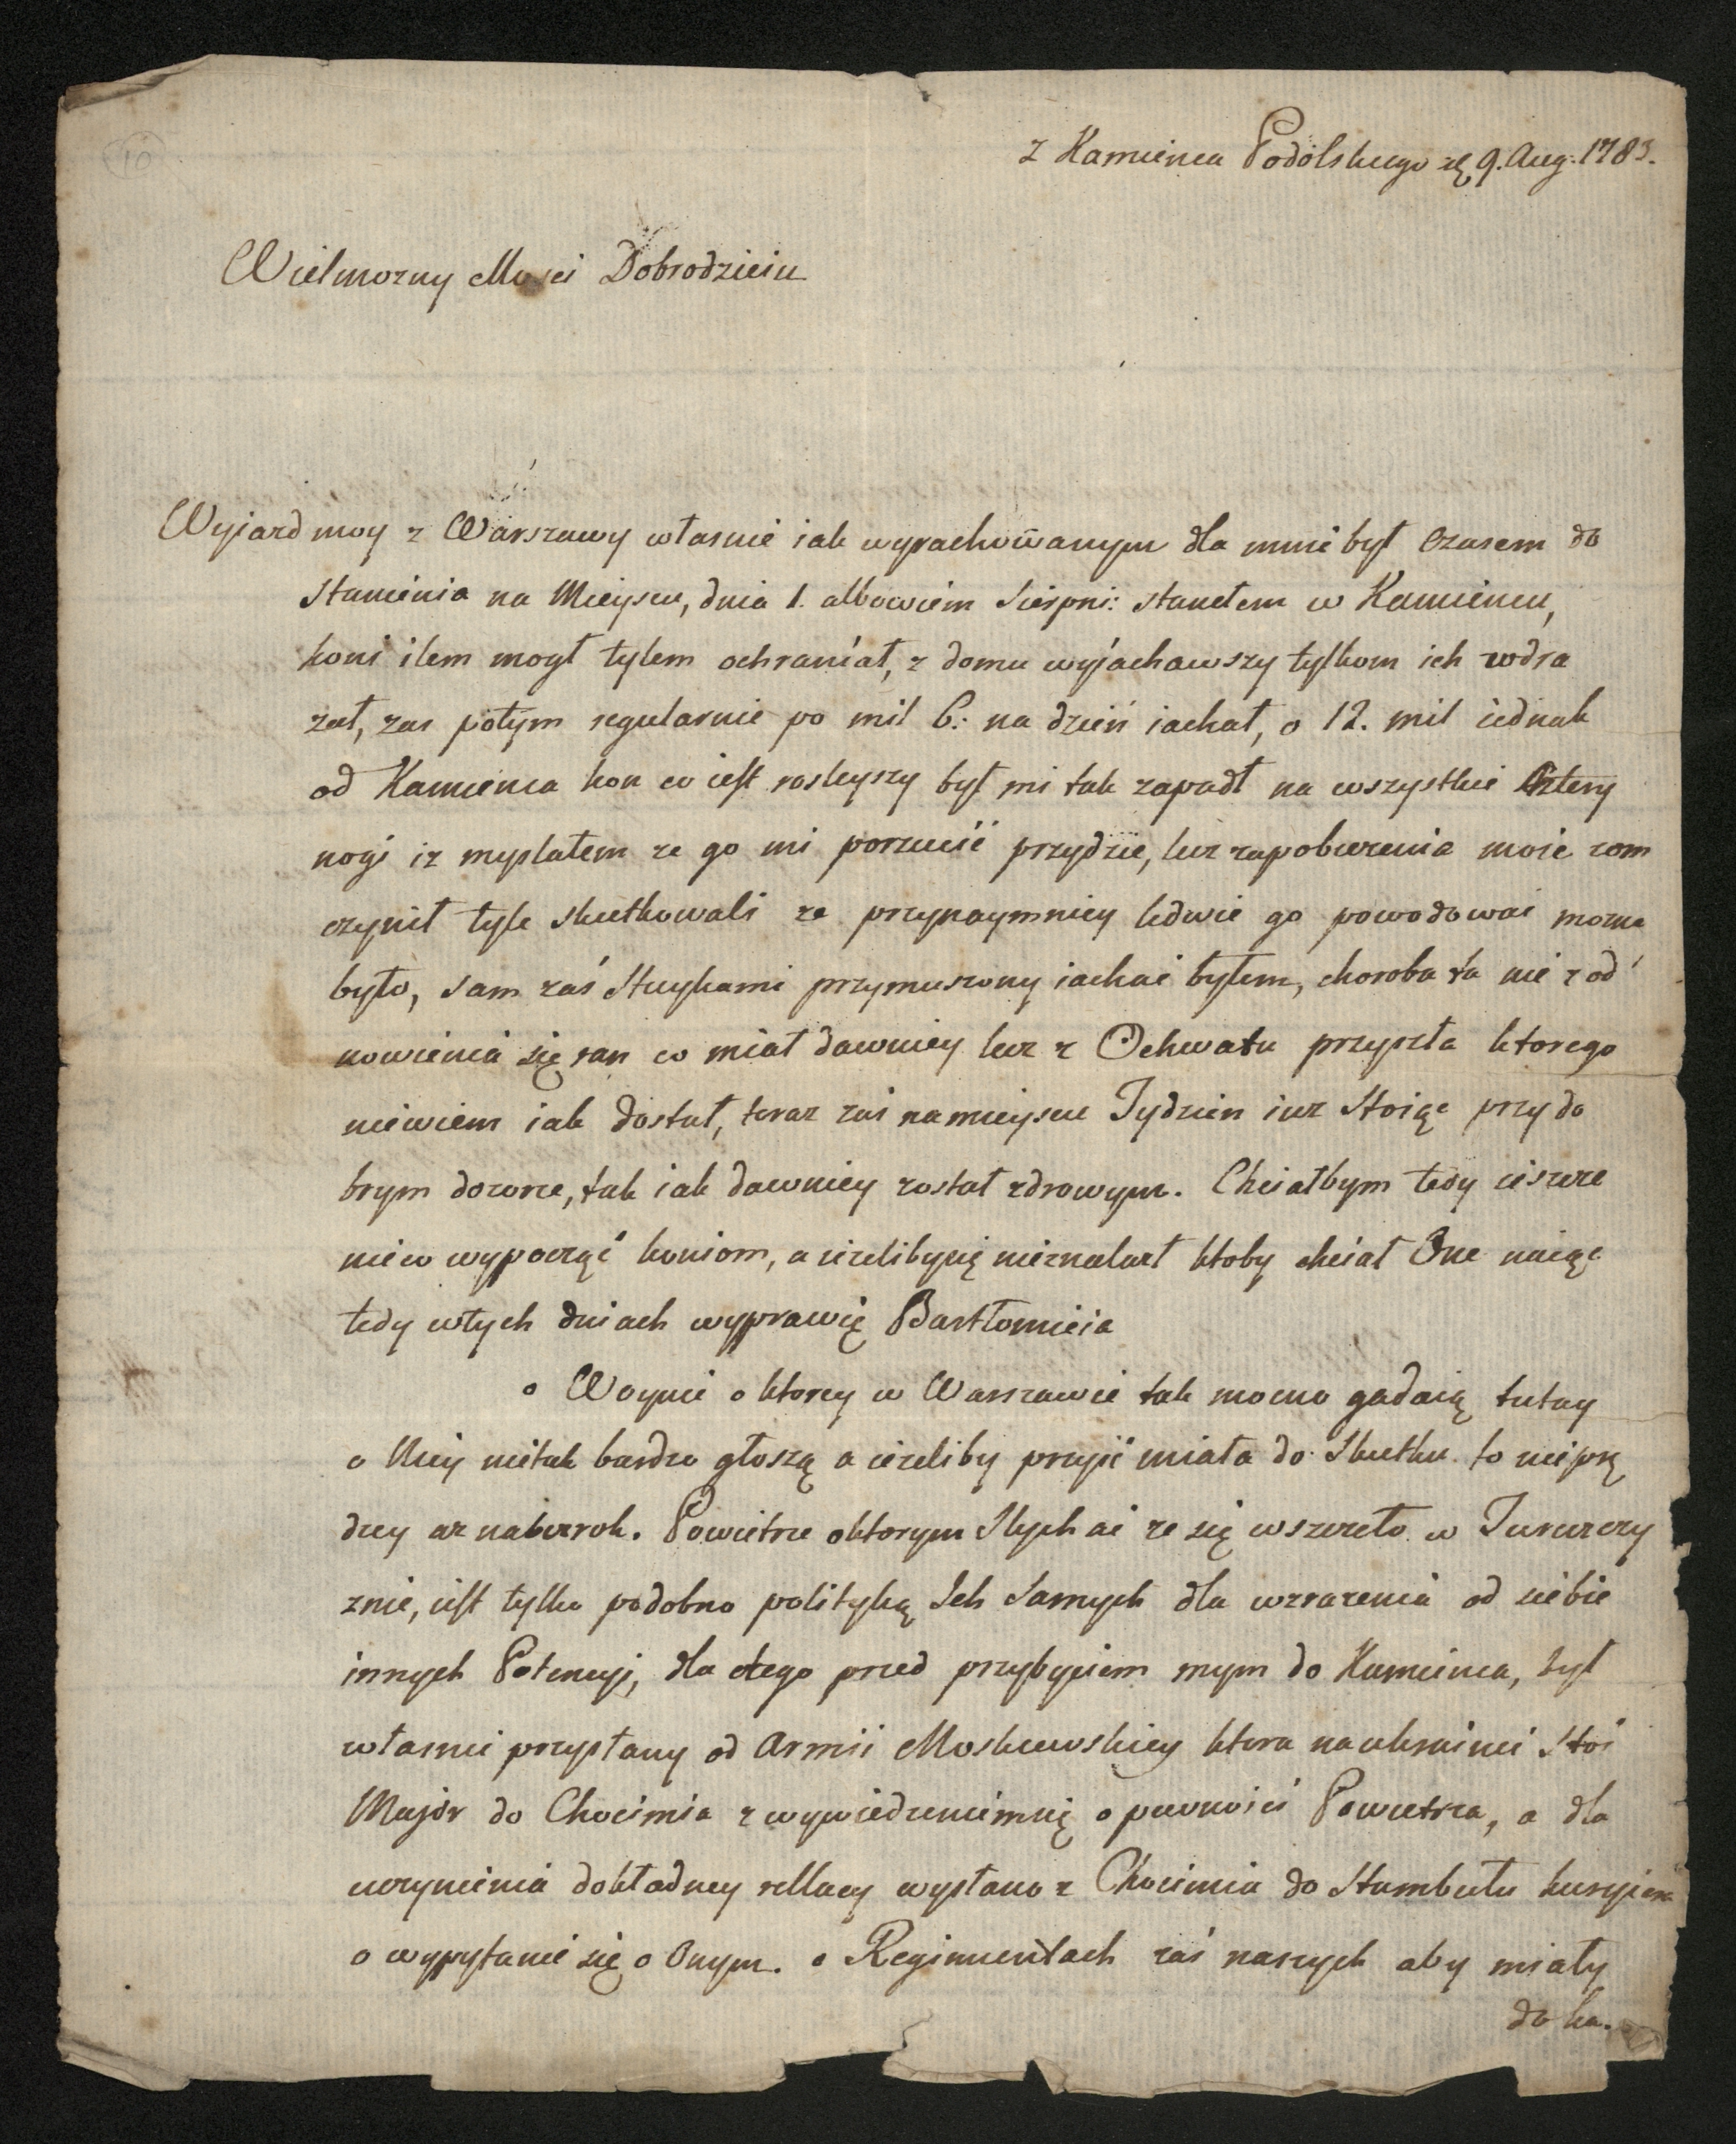 10
z Kamienca Podolskiego d. 9. Aug. 1783.
Wielmozny Mosci Dobrodzieiu
Wyjazd moy z Warszawy własnie iak wyrachowanym dla mnie był czasem do
stanienia na Mieyscu, dnia 1. albowiem Sierpni: stanełem w Kamiencu,
koni ilem mogł tylem ochraniał, z domu wyjachawszy tylkom ich wdra
zał, zas potym regularnie po mil 6: na dzień iachał, o 12. mil iednak
od Kamienca kon co iest rosleyszy był mi tak zapadł na wszystkie cztery
nogi iz myslałem ze go mi porzucić przydzie, lecz zapobiezenia moie com
czynił tyle skutkowali ze przynaymniey ledwie go powodować mozna
było, sam zaś Sztuykami przymuszony iachać byłem, choroba ta nie z od
nowienia się ran co miał dawniey lecz z Ochwatu przyszła ktorego
niewiem iak dostał, teraz zaś na mieyscu Tydzien iuz stoiąc przy do
brym dozorze, tak iak dawniey został zdrowym. Chciałbym tedy ieszcze
nieco wypocząć koniom, a iezelibysię nieznalazł ktoby chciał One naiąć
tedy wtych dniach wyprawię Bartłomieia
o Woynie o ktorey w Warszawie tak mocno gadaią tutay
o Niey nietak bardzo głoszą a iezeliby przyić miała do Skutku to nieprę
dzey az nabezrok. Powietrze oktorym słychać ze się wszczeło w Turczczy
znie, iest tylko podobno polityką Ich samych dla wzrazenia od siebie
innych Potencyi, dla czego przed przybyciem mym do Kamienca, był
własnie przysłany od Armii Moskiewskiey ktora na ukrainie stoi
Major do Chocimia z wywiedzeniemsię o pewności Powietrza, a dla
uczynienia dokładney rellacy wysłano z Chocimia do Stambułu kuryiera
o wypytanie się o Onym. o Regimentach zaś naszych aby miały
do ka.